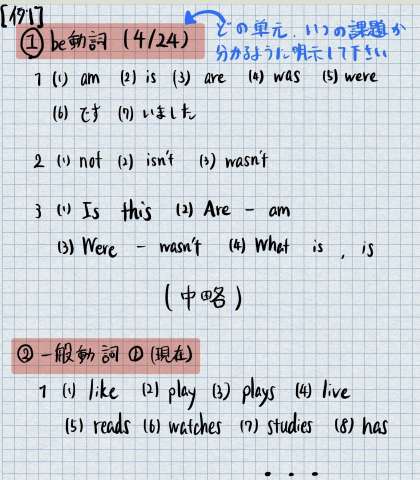 [例]
① be動詞 (4/24)
どの単元、いつの課題か
分かるように明示して下さい
1 (1) am (2) is (3) are (4) was (5) were
(6) です (7) いました
2 (1) not (2) isn't (3) wasn't
3 (1) Is this (2) Are - am
(3) Were - wasn't (4) What is , is
(中略)
② 一般動詞 ① (現在)
1 (1) like (2) play (3) plays (4) live
(5) reads (6) watches (7) studies (8) has
...